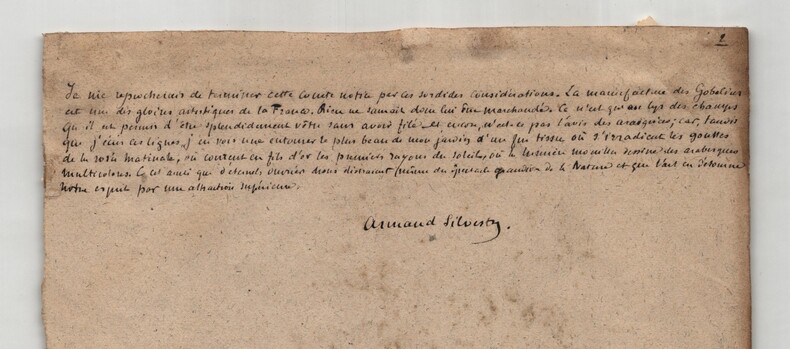 2
Je me reprocherais de terminer cette courte notice par ces sordides considérations. La manufacture des Gobelins
est une des gloires artistiques de la France. Rien ne saurait donc lui être marchandé. Ce n'est qu'au lys des champs
qu'il est permis d'être splendidement vêtu sans avoir filé. et encore, n'est-ce pas l'avis des araignées; car, tandis
que j'écris ces lignes, j'en vois une entourer le plus beau de mon jardin d'un fin tissu où s'irradient les gouttes
de la rosée matinale, où courent en fils d'or les premiers rayons du soleil, où la lumière dessine des arabesques
multicolores. C'est ainsi que d'éternels ouvriers nous distraient du spectacle de la Nature et que l'art en détourne
notre esprit par une attraction supérieure.
Armand Silvestre.